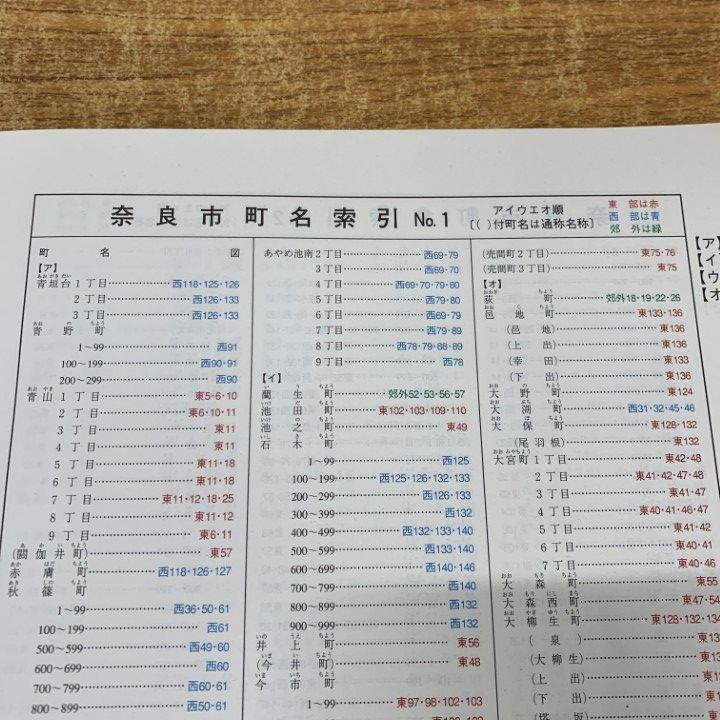 奈良市町名索引 No.1
アイウエオ順
[( )付町名は通称名称]
東 部は赤
西 部は青
郊 外は緑
町 名 図
【ア】
青垣台1丁目 西118・125・126
2丁目 西126・133
3丁目 西126・133
青野町
1~99 西91
100~199 西90・91
200~299 西90
青山1丁目 東5・6・10
2丁目 東6・10・11
3丁目 東11
4丁目 東11
5丁目 東11・18
6丁目 東11・18
7丁目 東11・12・18・25
8丁目 東11・12
9丁目 東6・11
(閼伽井町) 東57
赤膚町 西118・126・127
秋篠町
1~99 西36・50・61
100~199 西61
500~599 西49・60
600~699 西60
700~799 西60・61
800~899 西50・61
あやめ池南2丁目 西69・79
3丁目 西69・70
4丁目 西69・70・79・80
5丁目 西79・80
6丁目 西79・80
7丁目 西79・89
8丁目 西78・79・88・89
9丁目 西78
【イ】
藺生町 郊外52・53・56・57
池田町 東102・103・109・110
池之町 東49
石木町
1~99 西125
100~199 西125・126・132・133
200~299 西126・133
300~399 西132
400~499 西132・133・140
500~599 西133・140
600~699 西140・146
700~799 西140
800~899 西132
900~999 西132
井上町 東56
(今井町) 東48
今市町
1~99 東97・98・102・103
(売間町2丁目) 東75・76
(売間町3丁目) 東75
【オ】
荻町 郊外18・19・22・26
邑地町 東133・136
(邑地) 東136
(上出) 東136
(幸田) 東133
(下出) 東136
大野町 東124
大渕町 西31・32・45・46
大保町 東128・132
(尾羽根) 東132
大宮町1丁目 東42・48
2丁目 東41・42・47・48
3丁目 東41・47
4丁目 東40・41・47
5丁目 東41・42
6丁目 東40・41
7丁目 東40・41
大森町 東55
大森西町 東47・54
大柳生町 東128・132・134
(泉)
(大柳生)
(上出)
(下出)
【ア】
【イ】
【ウ
【オ